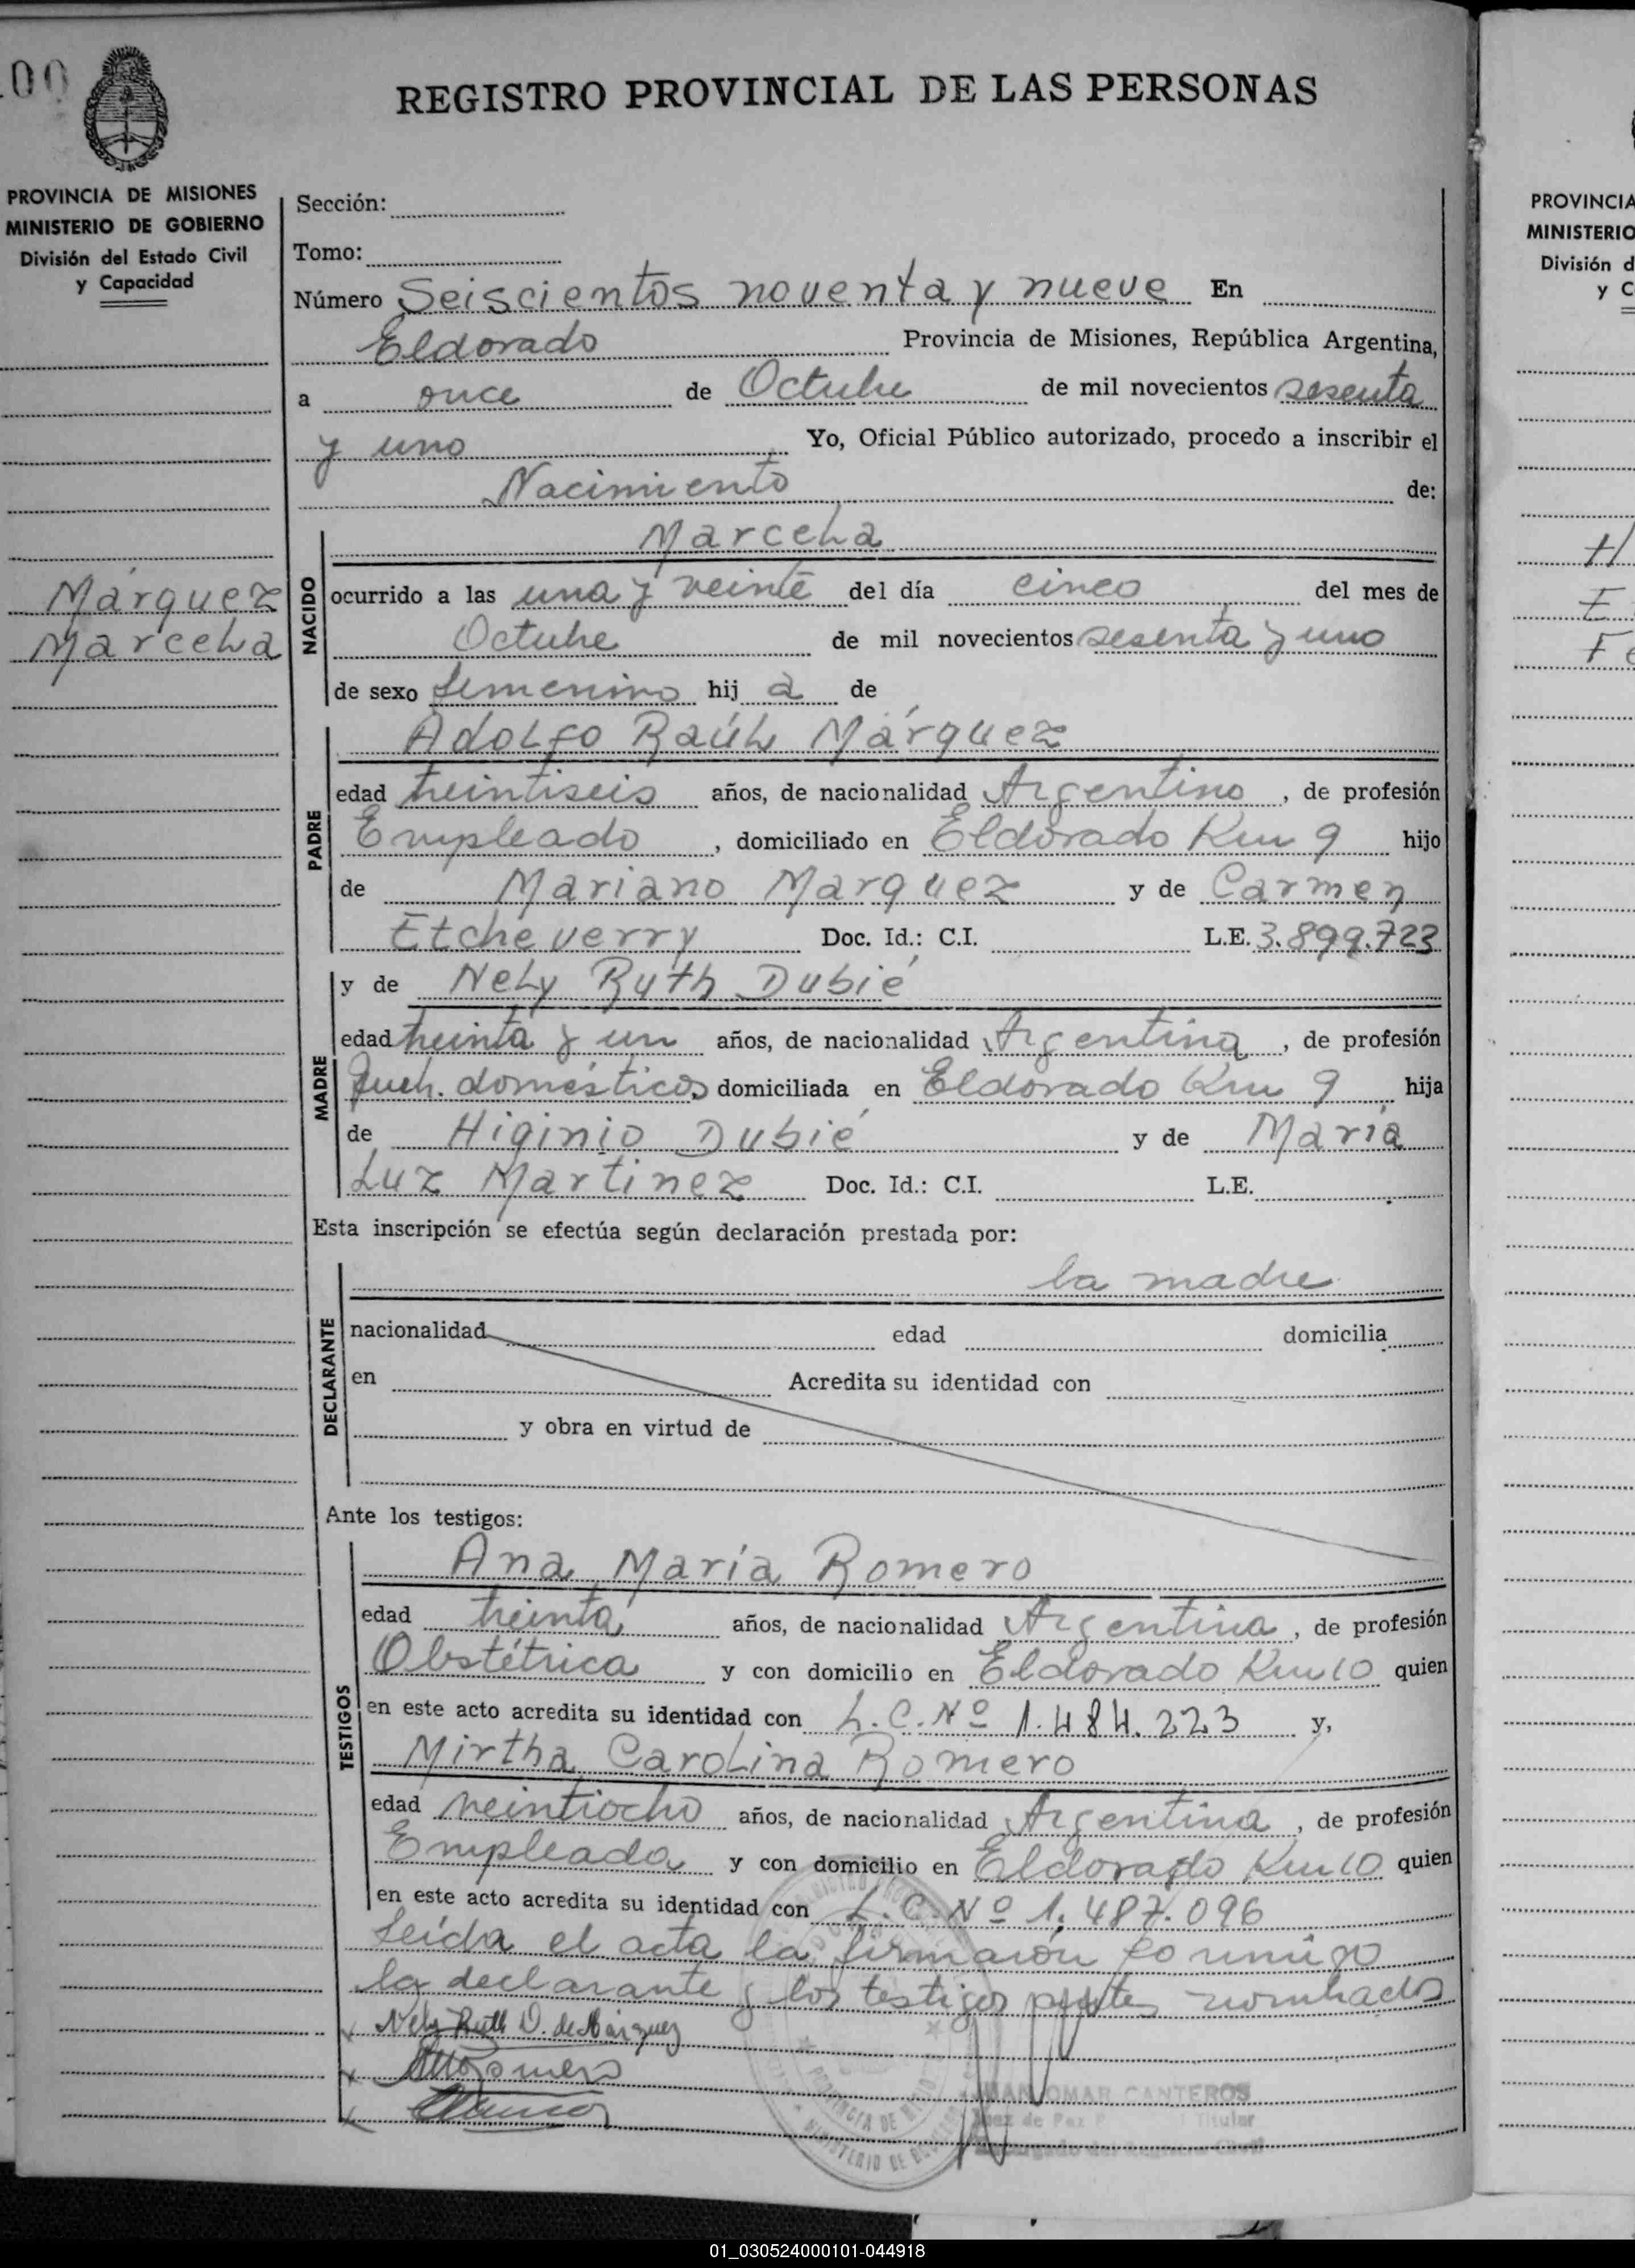 100
REGISTRO PROVINCIAL DE LAS PERSONAS
PROVINCIA DE MISIONES
MINISTERIO DE GOBIERNO
División del Estado Civil
y Capacidad
Márquez
Marcela
Sección:
Tomo:
Número Seiscientos noventa y nueve En
Eldorado Provincia de Misiones, República Argentina,
a once de Octubre de mil novecientos sesenta
y uno Yo, Oficial Público autorizado, procedo a inscribir el
Nacimiento de:
NACIDO
Marcela
ocurrido a las una y veinte del día cinco del mes de
Octubre de mil novecientos sesenta y uno
de sexo femenino hij a de
PADRE
Adolfo Raúl Márquez
edad treintiseis años, de nacionalidad Argentino, de profesión
Empleado, domiciliado en Eldorado Km 9 hijo
de Mariano Marquez y de Carmen
Etcheverry Doc. Id.: C.I. L.E. 3.899.723
MADRE
y de Nely Ruth Dubié
edad treinta y un años, de nacionalidad Argentina, de profesión
Queh. domésticos domiciliada en Eldorado Km 9 hija
de Higinio Dubié y de María
Luz Martinez Doc. Id.: C.I. L.E.
Esta inscripción se efectúa según declaración prestada por:
DECLARANTE
la madre
nacionalidad edad domicilia
en Acredita su identidad con
y obra en virtud de
Ante los testigos:
TESTIGOS
Ana María Romero
edad treinta años, de nacionalidad Argentina, de profesión
Obstétrica y con domicilio en Eldorado Km 10 quien
en este acto acredita su identidad con L.C. Nº 1.484.223 y,
Mirtha Carolina Romero
edad veintiocho años, de nacionalidad Argentina, de profesión
Empleada y con domicilio en Eldorado Km 10 quien
en este acto acredita su identidad con L.C. Nº 1.487.096
Leída el acta la firmaron conmigo
la declarante y los testigos nombrados
Nely Ruth D. de Márquez
Romero
JUAN OMAR CANTEROS
Juez de Paz Titular
PROVINCIA
MINISTERIO
División d
y C
H
E
Fe
01_030524000101-044918